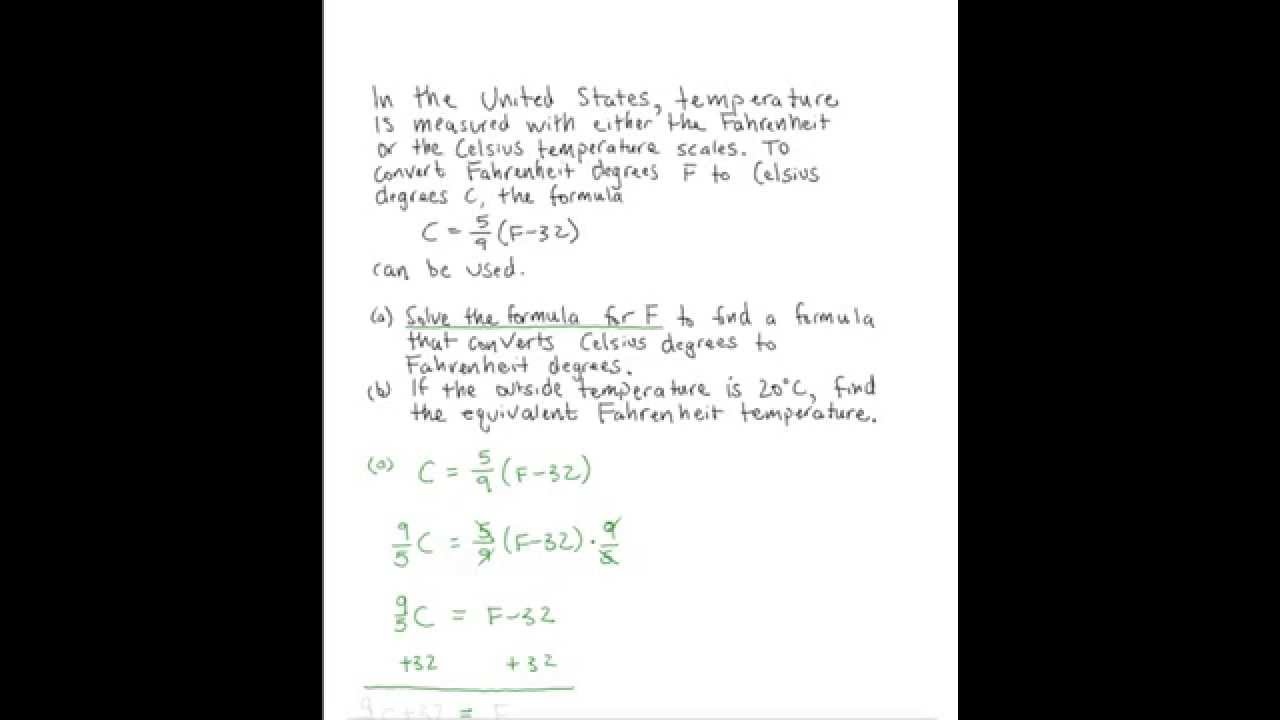 In the United States, temperature
is measured with either the Fahrenheit
or the Celsius temperature scales. To
convert Fahrenheit degrees F to Celsius
degrees C, the formula
C = 5/9 (F-32)
can be used.
(a) Solve the formula for F to find a formula
that converts Celsius degrees to
Fahrenheit degrees.
(b) If the outside temperature is 20°C, find
the equivalent Fahrenheit temperature.
(a) C = 5/9 (F-32)
9/5 C = 5/9 (F-32) · 9/5
9/5 C = F-32
+32 +32
9/5 C+32 = F